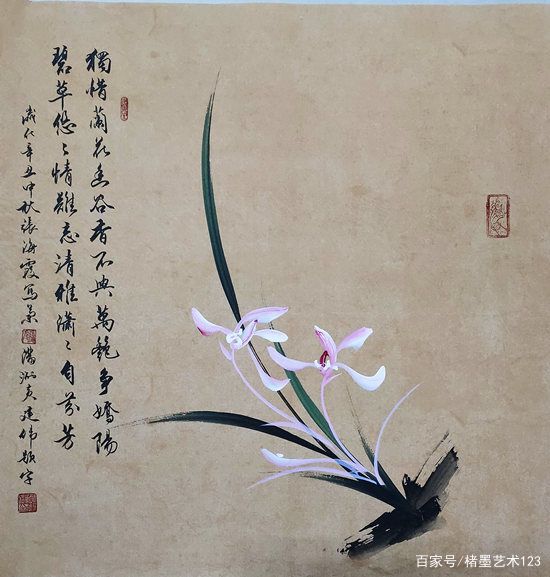 獨惜蘭花幽谷香不與萬艷爭嬌陽
碧草悠〻情難忘清雅瀟〻自芬芳
歲在辛丑中秋張海霞寫 建偉題字
百家号/楮墨艺术123